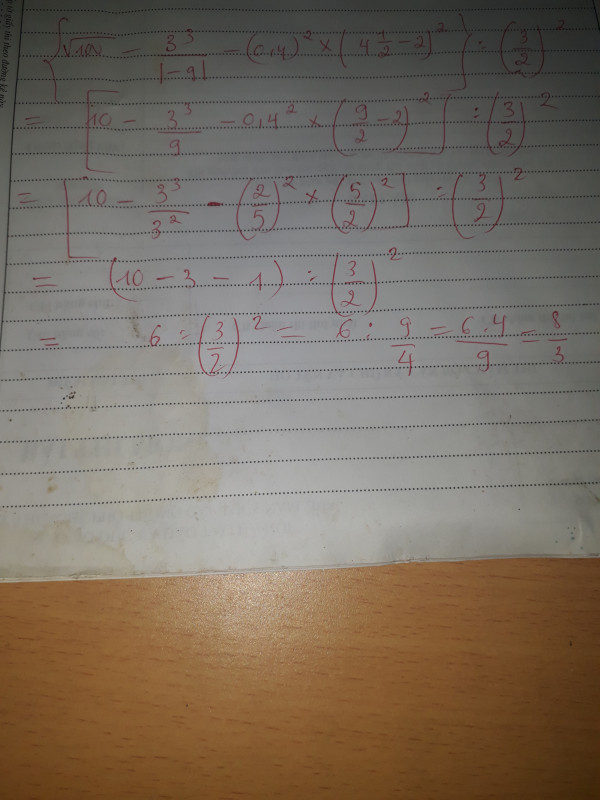 {√100 - 3³/|-9| - (0,4)² × (4 1/2 - 2)²} : (3/2)²
= [10 - 3³/9 - 0,4² × (9/2 - 2)²] : (3/2)²
= [10 - 3³/3² - (2/5)² × (5/2)²] : (3/2)²
= (10 - 3 - 1) : (3/2)²
= 6 : (3/2)² = 6 : 9/4 = 6.4/9 = 8/3